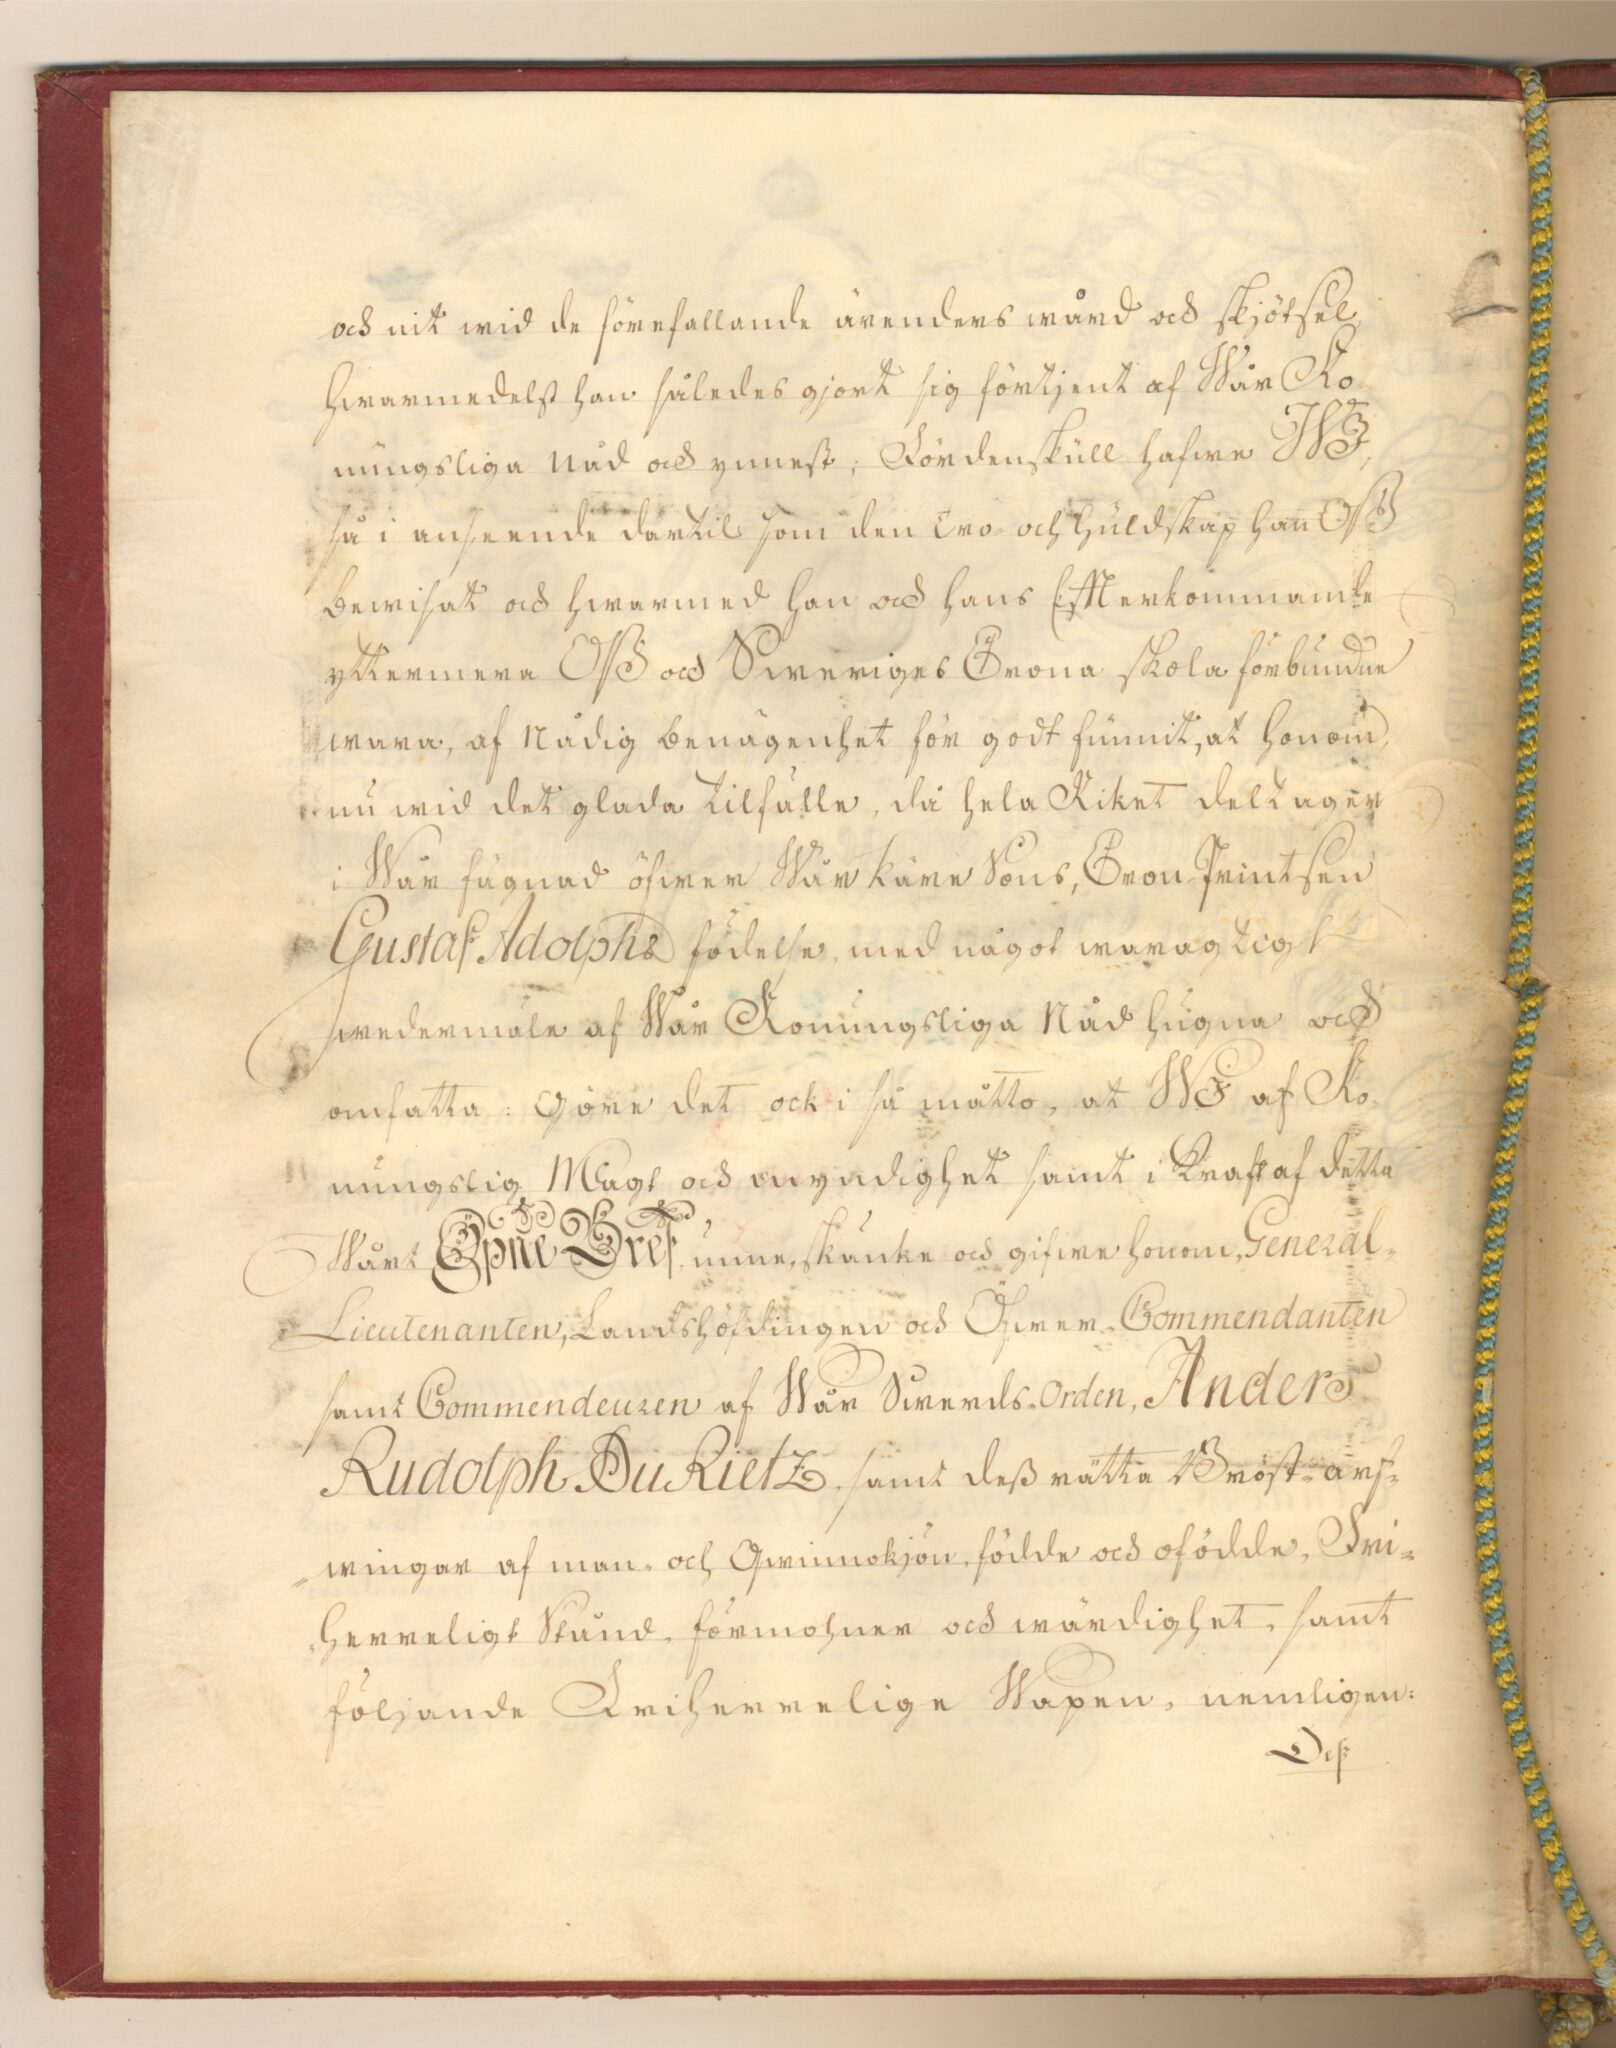 och nit wid de förefallande ärenders wård och skjötsel,
hwarmedelst han således gjort sig förtjent af Wår Ko-
nungsliga Nåd och ynnest; Fördenskull hafwe WJ,
så i anseende dertil som den tro- och huldskap han OSS
bewisat och hwarmed han och hans Efterkommande
yttermera OSS och Sweriges Crona skola förbundne
wara, af Nådig benägenhet för godt funnit, at honom,
nu wid det glada tilfälle, då hela Riket deltager
i Wår fägnad öfwer Wår käre Sons, Cron-Printsen
Gustaf Adolphs födelse, med något waragtigt
wedermäle af Wår Konungsliga Nåd hugna och
omfatta: Göre det ock i så matto, at WJ af Ko-
nungslig Magt och myndighet samt i Kraft af detta
Wårt Öpne Bref, unne, skänke och gifwe honom, General-
Lieutenanten, Landshöfdingen och Öfwer-Commendanten
samt Commendeuren af Wår Swerds-Orden, Anders
Rudolph Du Rietz, samt deß rätta Bröst-arf-
wingar af man- och Qwinnokjön, födde och ofödde, Fri-
herreligt Stånd, förmohner och wärdighet, samt
följande Friherrelige Wapen, nemligen:
Deß